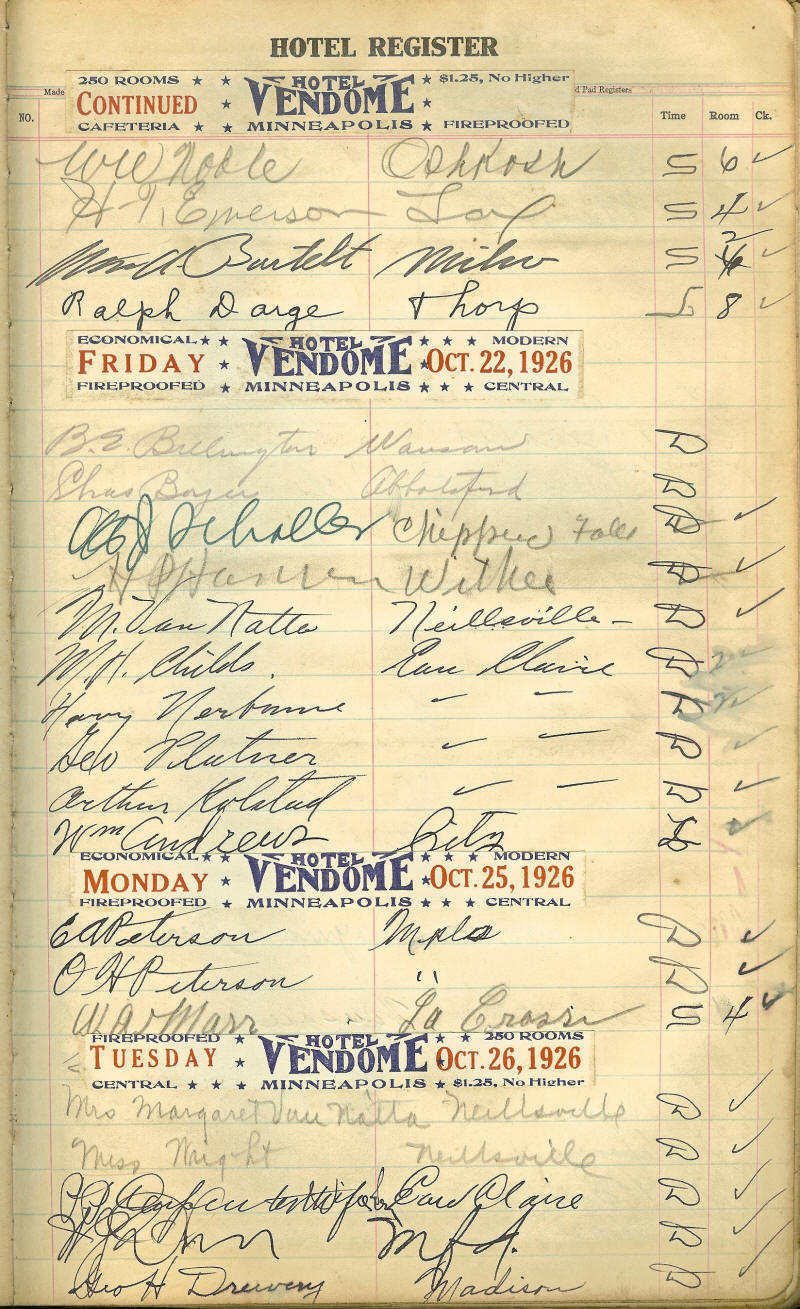 HOTEL REGISTER
Made d Pad Registers
250 ROOMS ★ ★ HOTEL ★ $1.25, No Higher
CONTINUED ★ VENDOME ★
CAFETERIA ★ ★ MINNEAPOLIS ★ FIREPROOFED
NO. Time Room Ck.
Noble Oshkosh S 6 ✓
H. T. Emerson S 4 ✓
Bartelt Milw S 2 ✓
Ralph Darge Thorp L 8 ✓
ECONOMICAL ★ ★ HOTEL ★ ★ ★ MODERN
FRIDAY ★ VENDOME ★ OCT. 22, 1926
FIREPROOFED ★ MINNEAPOLIS ★ ★ ★ CENTRAL
B. E. Billington Wausau D
Chas Boyer Abbotsford D
Scholler Chippewa Falls D ✓
H P Hansen Withee D ✓
M. Van Natta Neillsville – D ✓
M. H. Childs. Eau Claire D
Harry Nerbonne " " D
Geo Platner " " D ✓
Arthur Kolstad " " D ✓
Wm Andrews City ✓
ECONOMICAL ★ ★ HOTEL ★ ★ ★ MODERN
MONDAY ★ VENDOME ★ OCT. 25, 1926
FIREPROOFED ★ MINNEAPOLIS ★ ★ ★ CENTRAL
E A Peterson Mpls D ✓
O H Peterson " D ✓
Marr La Crosse S 4 ✓
FIREPROOFED ★ ★ HOTEL ★ ★ 250 ROOMS
TUESDAY ★ VENDOME ★ OCT. 26, 1926
CENTRAL ★ ★ ★ MINNEAPOLIS ★ $1.25, No Higher
Mrs Margaret Van Natta Neillsville D ✓
Miss Wright Neillsville D ✓
Carpenter & Wife Eau Claire D ✓
D ✓
Geo H Drewery Madison D ✓